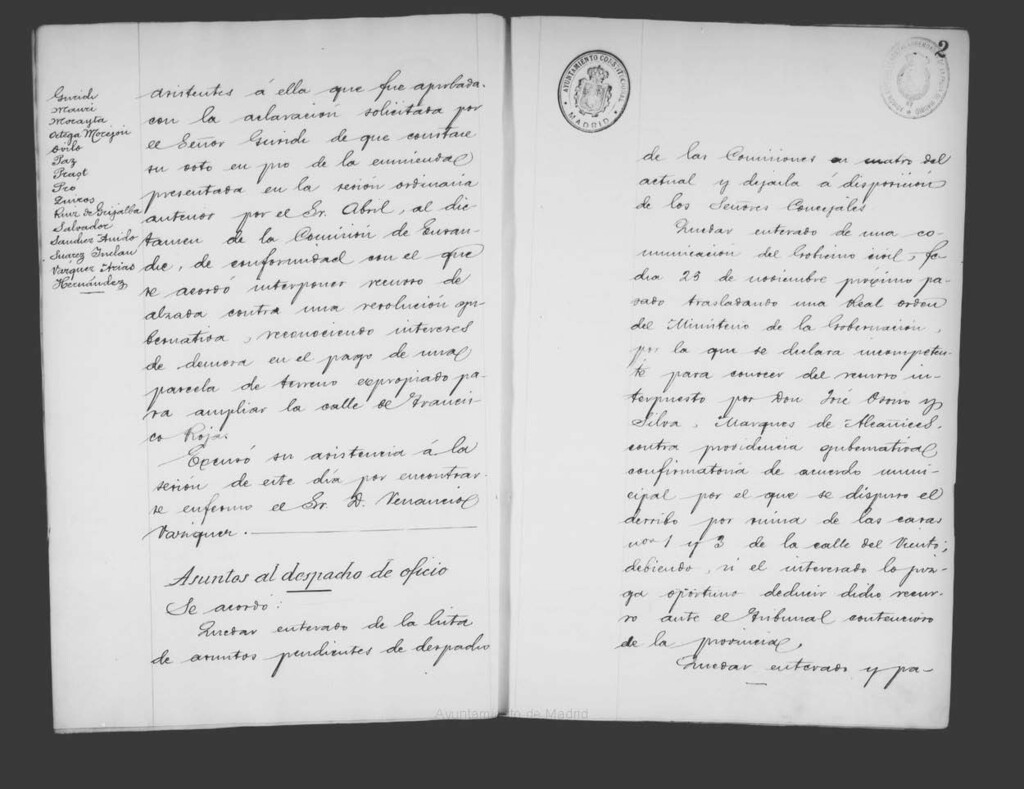 Guridi
Mauri
Morayta
Ortega Morejón
Ovilo
Paz
Peagt
Peo
Quirós
Ruiz de Grijalba
Salvador
Sanchez Anido
Suarez Inclan
Vazquez Arias
Hernández
asistentes á ella que fue aprobada.
con la aclaración solicitada por
el Señor Guridi de que constase
su voto en pro de la enmienda
presentada en la sesión ordinaria
anterior por el Sr. Abril, al dic-
tamen de la Comisión de Ensan-
che, de conformidad con el que
se acordó interponer recurso de
alzada contra una resolución gu-
bernativa, reconociendo intereses
de demora en el pago de una
parcela de terreno expropiado pa-
ra ampliar la calle de Francis-
co Rojas.
Excusó su asistencia á la
sesión de este día por encontrar-
se enfermo el Sr. D. Venancio
Vazquez.
Asuntos al despacho de oficio
Se acordó:
Quedar enterado de la lista
de asuntos pendientes de despacho
AYUNTAMIENTO CONSTITUCIONAL
MADRID
2
de las Comisiones en cuatro del
actual y dejarla á disposición
de los Señores Concejales
Quedar enterado de una co-
municación del Gobierno civil, fe-
cha 23 de noviembre próximo pa-
sado trasladando una Real orden
del Ministerio de la Gobernación,
por la que se declara incompeten-
te para conocer del recurso in-
terpuesto por Don José Osorio y
Silva, Marques de Alcañices,
contra providencia gubernativa
confirmatoria de acuerdo muni-
cipal por el que se dispuso el
derribo por ruina de las casas
nos 1 y 3 de la calle del Viento;
debiendo, si el interesado lo juz-
ga oportuno deducir dicho recur-
so ante el Tribunal contencioso
de la provincia.
Quedar enterado y pa-
Ayuntamiento de Madrid